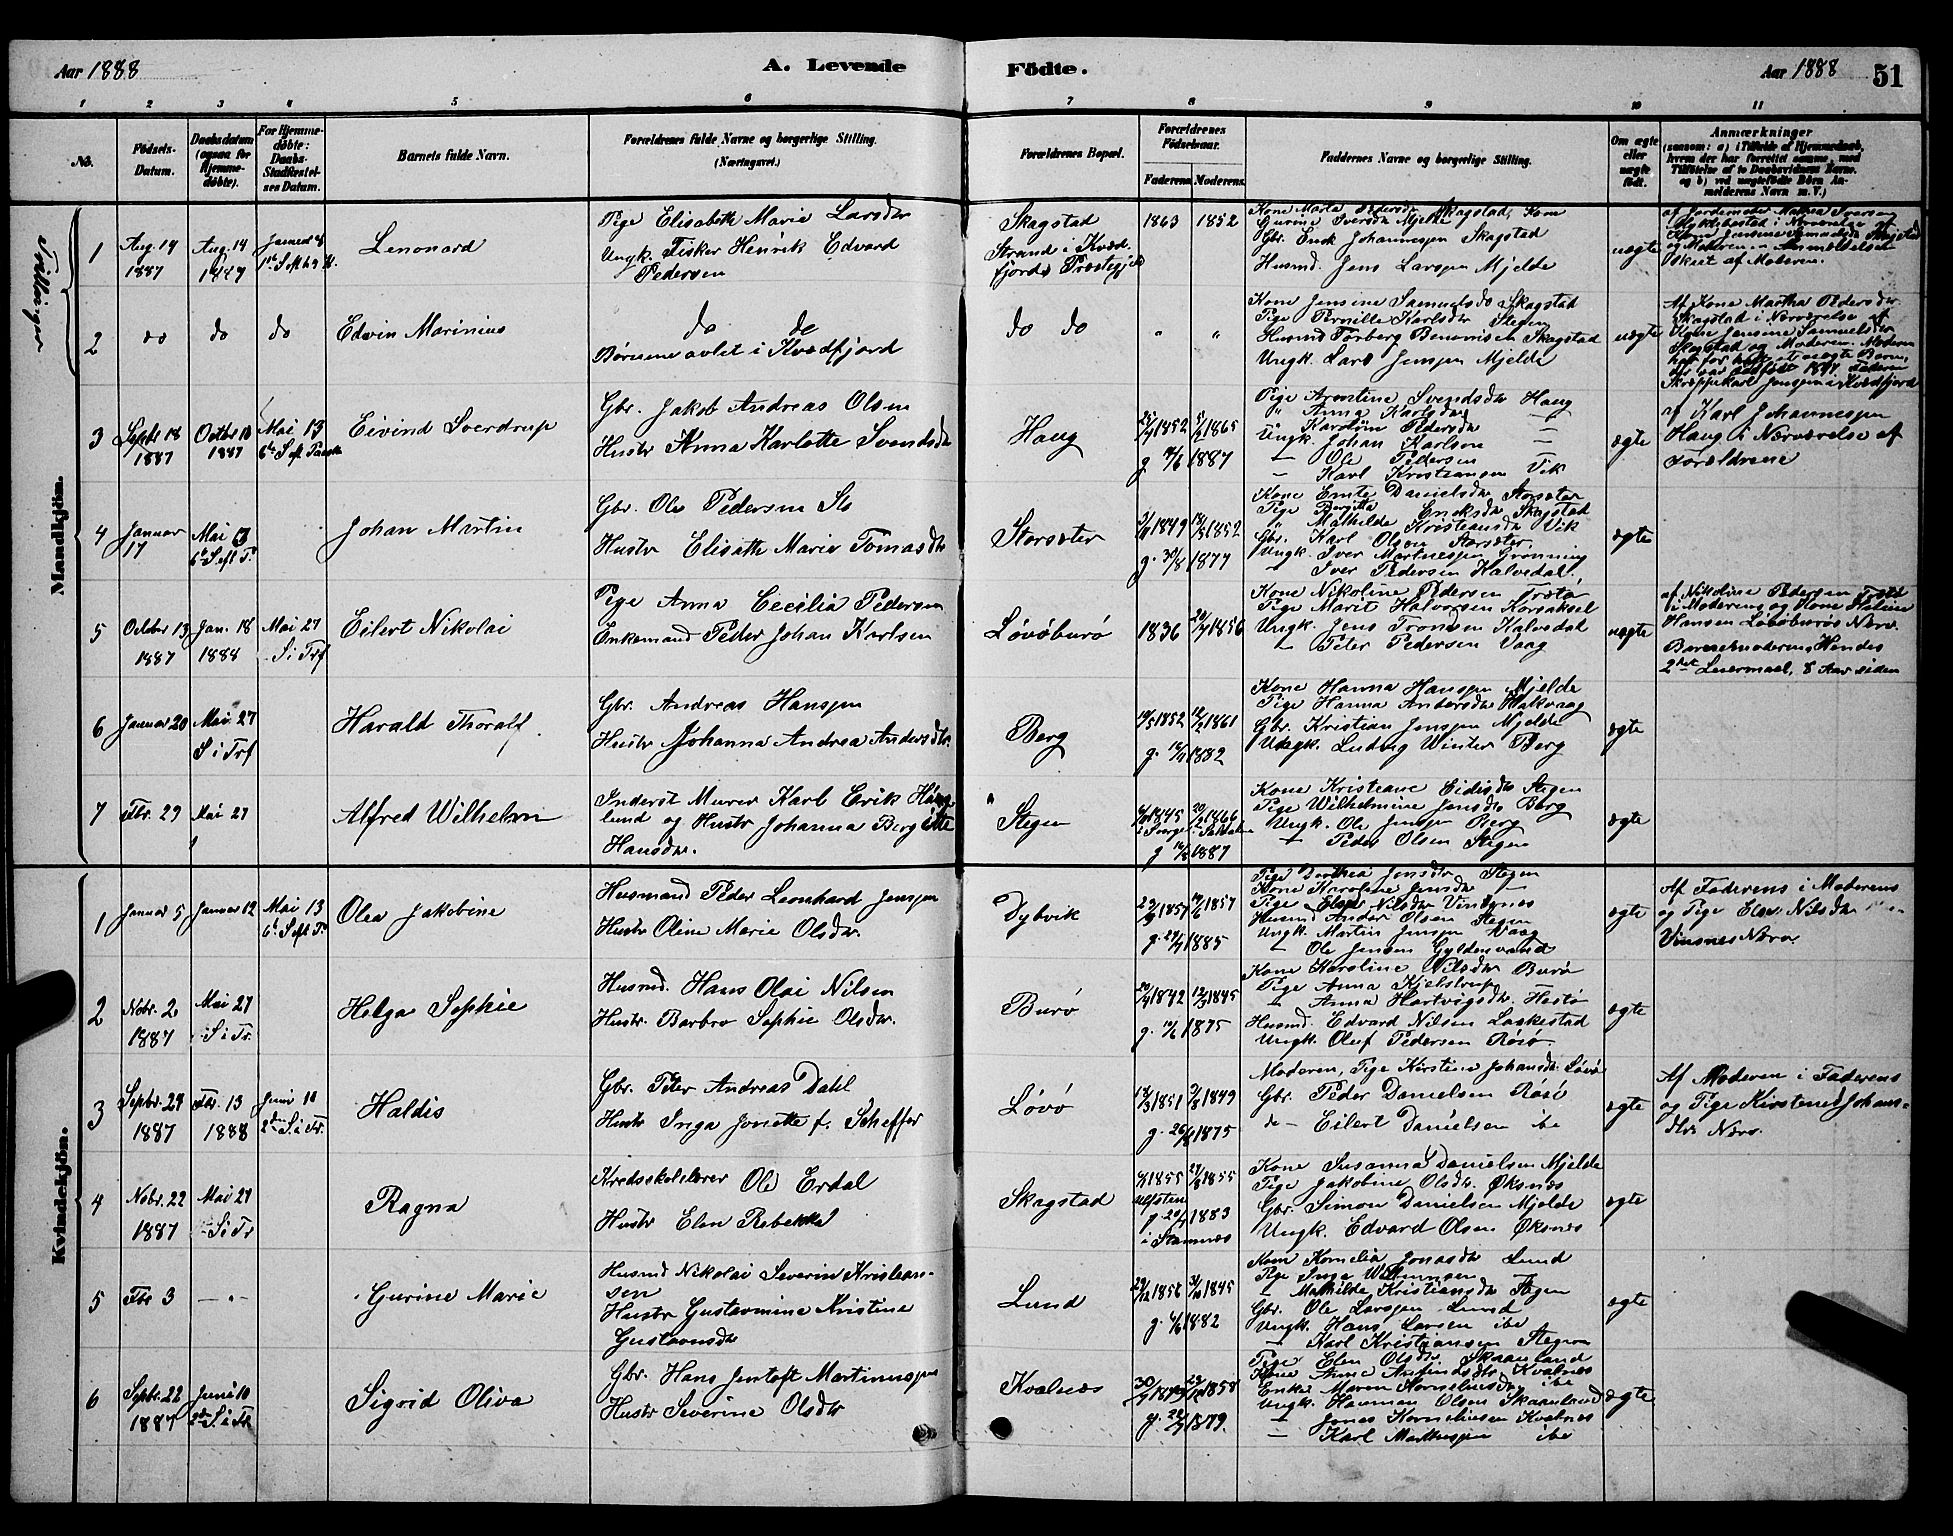 Aar 1888
A. Levende Födte.
Aar 1888
51
1 2 3 4 5 6 7 8 9 10 11
No.
Födsets-Datum.
Daabsdatum (ogsaa for Hjemmedöbte).
For Hjemmedöbte: Daabs-Stadfæstelses Datum.
Barnets fulde Navn.
Forældrenes fulde Navne og borgerlige Stilling.
(Næringsvei.)
Forældrenes Bopæl.
Forældrenes Födselsaar.
Faderens. Moderens.
Faddernes Navne og borgerlige Stilling.
Om ægte eller uægte födt.
Anmærkninger
(saasom: a) i Tilfælde af Hjemmedaab, hvem der har forrettet samme, med Tilföielse af to Daabsvidners Navne. og b) ved uægtefödte Börn Anmelderens Navn m. V.)
Mandkjön.
Tvillinger
1 Aug 14 1887
Aug. 14
Lenonard
Pige Elisabeth Marie Larsdtr
Ungk. Fisker Henrik Edvard
Pedersen
Skagstad
Strand i Kvæd-
fjords Præstegjeld
1863 1852
Gbr. Enok Johannessen Skagstad
Husmd. Jens Larsen Mjelde
uægte
2 do do do
Edvin Marinius
do do
Børnene avlet i Kvædfjord
do do
" "
Kone Jensine Samuelsdr Skagstad
Pige Pernille Karlsdtr Stegen
Husmd Torberg Benonisen Skagstad
Ungk. Lars Jensen Mjelde
uægte
Af Kone Martha Pedersdtr
Skagstad i Nærværelse af
Kone Jensine Samuelsdtr
Skagstad og Moderen. Moderen
3 Septbr 18 1887
Octbr 10 1887
Mai 13
Eivind Sverdrup
Gbr. Jakob Andreas Olsen
Hustr Anna Karlotte Svendsdtr
Haug
1852 1865
g. 1887
Pige Arontine Svendsdtr Haug
" Anna Karlsdtr —
Ungk. Johan Karlson —
— Ole Pedersen —
— Karl Kristiansen Vik
ægte
af Karl Johannessen
Haug i Nærværelse af
Forældrene
4 Januar 17
Mai 13
Johan Martin
Gbr. Ole Pedersen
Hustr Elisabeth Marie Tomasdtr
Storsæter
1849 1852
g. 30/8 1877
Kone Danielsdtr Storsæter
Pige Birgitta Eriksdtr Skagstad
" Mathilde Kristiansdtr Vik
Gbr. Karl Olsen Storsæter
Ungk. Iver Martinessen Grønning
— Iver Pedersen Kalvedal
ægte
5 October 13 1887
Jan. 18 1888
Mai 27
S i Trf
Eilert Nikolai
Pige Anna Cecilia Pedersen
Enkemand Peder Johan Karlsen
Løvøburø
1836 1856
Kone Nikoline Pedersen
Pige Marit Halvorsen Korsaksel
Ungk. Jens Tronsen Kalvedal
— Peter Pedersen Vaag
uægte
af Nikoline Pedersen
i Moderens og Kone
Hansen Løvøburøs Nærv.
Barnemoderen, Hendes
2det Leiermaal, 8 Aar siden
6 Januar 20
Mai 27
S i Trf
Harald Thoralf
Gbr. Andreas Hansen
Hustr Johanna Andrea Andersdtr.
Berg
1852 1861
g. 1882
Kone Hanna Hansen Mjelde
Pige Hanna Andersdtr
Gbr. Kristian Jensen Mjelde
Ungk. Ludvig Winter Berg
ægte
7 Fbr. 29
Mai 27
Alfred Wilhelm
Inderst Murer Karl Erik Häg-
lund og Hustr Johanna Bergitte
Hansdtr.
Stegen
1845 1866
g 1887
Kone Kristiane Eidisdtr Stegen
Pige Wilhelmine Jensdtr Berg
Ungk. Ole Jensen Berg
— Peder Olsen Stegen
ægte
Kvindekjön.
1 Januar 5
Januar 12
Mai 13
Olea Jakobine
Husmand Peder Leonhard Jensen
Hustr Oline Marie Olsdtr.
Dybvik
1857 1857
g. 1885
Pige Dorthea Jensdtr Stegen
Kone Karoline Jensdtr —
Husmd Andor Olsen Stegen
Ungk. Martin Jensen Vaag
— Ole Jensen Gyldensvand
ægte
Af Faderens i Moderens
og Pige Elen Nilsdtr
Vinsnes Nærv.
2 Nobr. 2 1887
Mai 27
S i Tr.
Helga Sophie
Husmd. Hans Olai Nilsen
Hustr. Barbro Sophie Olsdtr.
Burø
1842 1845
g. 1875
Kone Karoline Nilsdtr Burø
Pige Anna Kjelstrup
— Anna Hartvigsdtr. Hestø
Husmd. Edvard Nilsen Laskestad
Ungk. Oluf Pedersen Røsø
ægte
3 Sepbr. 29 1887
Fbr. 13 1888
Juni 10
2den S i Tr.
Haldis
Gbr. Peter Andreas Dahl
Hustr Inga Jonette f. Scheffer
Løvø
1851 1849
g. 1875
Moderen, Pige Kirstine Johansdtr Løvø
Gbr. Peder Danielsen Røsø
do — Eilert Danielsen ibe
ægte
Af Moderen i Faderens
og Pige Kirstine Johans-
dtrs Nærv.
4 Nobr. 22 1887
Mai 27
S i Tr
Ragna
Kredsskolelærer Ole Erdal
Hustr Elen Rebekka
Skagstad
1855 1855
g. 1883
i Stamnæs
Kone Susanna Danielsen Mjelde
Pige Jakobine Olsdtr. Øksnes
Gbr. Simon Danielsen Mjelde
Ungk. Edvard Olsen Øksnes
ægte
5 Fbr 3
— " —
Gurine Marie
Husmd Nikolai Severin Kristian-
sen
Hustr Gustavmina Kristine
Gustavusdtr
Lund
1856 1845
g 1882
Kone Kornelia Jonasdtr Lund
Pige Inga
— Mathilde Kristiansdtr Stegen
Gbr. Ole Larsen Lund
Ungk. Hans Larsen ibe
— Karl Kristiansen Stegen
ægte
6 Sepbr. 22 1887
Juni 10
2den S i Tr
Sigrid Oliva
Gbr. Hans Jentoft Martinussen
Hustr Severine Olsdtr
Kvalnæs
1858
g. 1879.
Pige Elen Olsdtr Skaanland
Kone Anne Arnfindsdtr Kvalnæs
Enke Maren Kornelius­dtr ibe
Ungk. Herman Olsen Skaanland
— Jonas Korneliusen Kvalnæs
— Karl Martinussen ibe
ægte